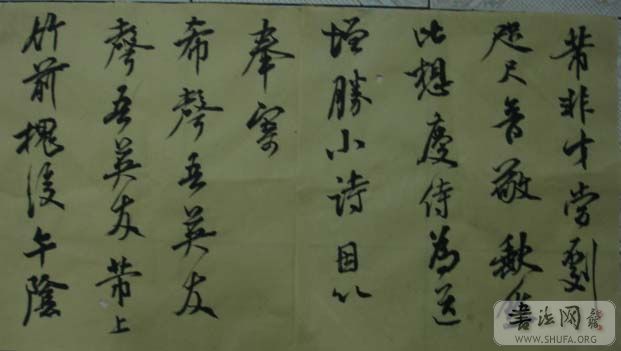 芾非才當劇
咫尺音敬缺
比想慶侍為道
增勝小詩因以
奉寄
希聲吾英友
聲吾英友芾上
竹前槐後午陰
書法网
WWW.SHUFA.ORG